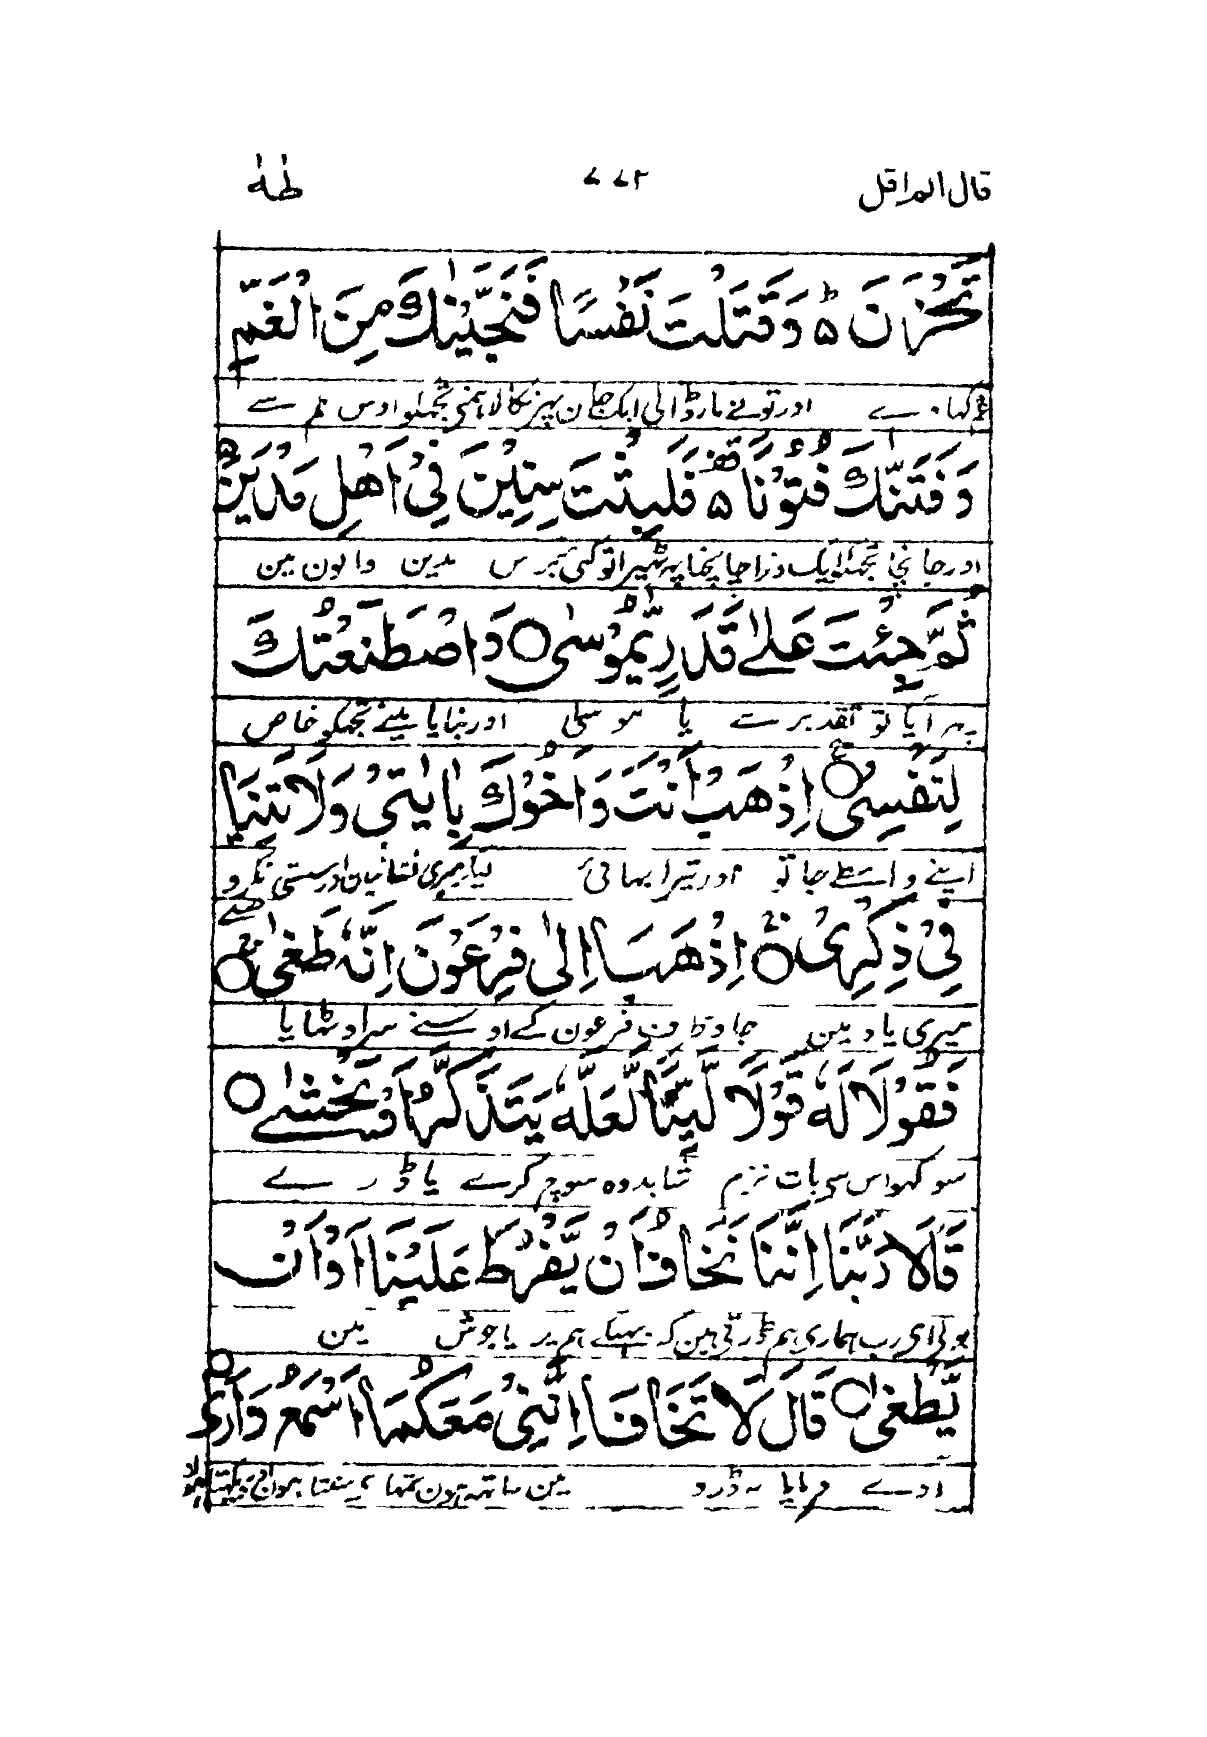 قال الم اقل ۷۷۲ طٰهٰ
تَحْزَنَ ۵ؕ وَقَتَلْتَ نَفْسًا فَنَجَّيْنٰكَ مِنَ الْغَمِّ
غم کھاوے اور تونے مار ڈالی ایک جان پھر نکالا ہمنی تجھکو اوس غم سے
وَفَتَنّٰكَ فُتُوْنًا ۵ فَلَبِثْتَ سِنِيْنَ فِيْٓ اَهْلِ مَدْيَنَ
اور جانچا تجھکو ایک ذرا جانچنا پھر ٹھیرا تو کئی برس مدین والون مین
ثُمَّ جِئْتَ عَلٰى قَدَرٍ يّٰمُوْسٰى ○ وَاصْطَنَعْتُكَ
پھر آیا تو تقدیر سے یا موسٰی اور بنایا مینے تجھکو خاص
لِنَفْسِيْ ○ اِذْهَبْ اَنْتَ وَاَخُوْكَ بِاٰيٰتِيْ وَلَا تَنِيَا
اپنے واسطے جا تو اور تیرا بھائی لیکر میری نشانیان اور سستی نکرو
فِيْ ذِكْرِيْ ○ اِذْهَبَآ اِلٰى فِرْعَوْنَ اِنَّهٗ طَغٰى ○
میری یاد مین جاو طرف فرعون کے اوسنے سر اوٹھایا
فَقُوْلَا لَهٗ قَوْلًا لَّيِّنًا لَّعَلَّهٗ يَتَذَكَّرُ اَوْ يَخْشٰى ○
سو کہو اس سی بات نرم شاید وہ سوچ کرے یا ڈرے
قَالَا رَبَّنَآ اِنَّنَا نَخَافُ اَنْ يَّفْرُطَ عَلَيْنَآ اَوْ اَنْ
بولی ای رب ہماری ہم ڈرتی ہین کہ بھبکے ہم پر یا جوش مین
يَّطْغٰى ○ قَالَ لَا تَخَافَآ اِنَّنِيْ مَعَكُمَآ اَسْمَعُ وَاَرٰى ○
آوے فرمایا نہ ڈرو مین ساتھ ہون تمہارے سنتا ہون اور دیکھتا ہون